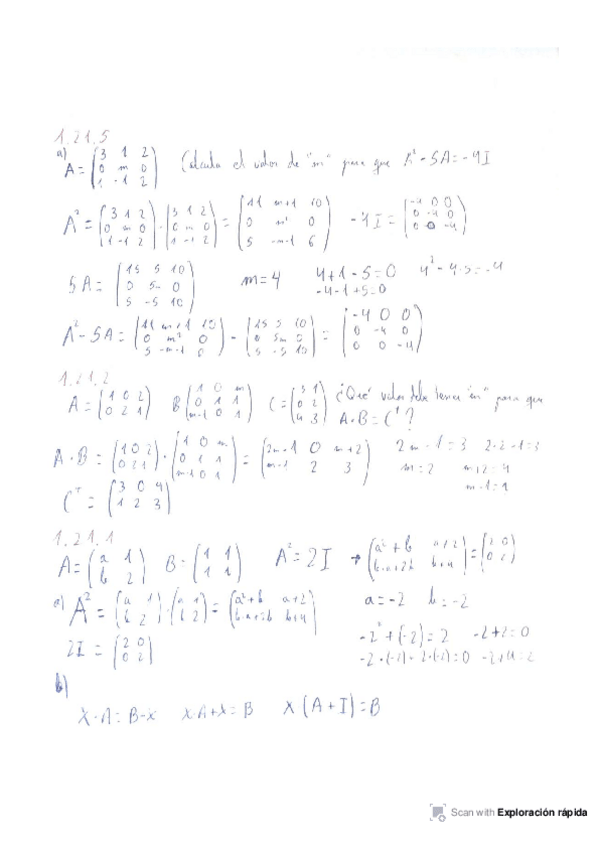 1.21.5
a) A = (3 1 2 / 0 m 0 / 1 -1 2) Calcula el valor de "m" para que A² - 5A = -4I
A² = (3 1 2 / 0 m 0 / 1 -1 2) · (3 1 2 / 0 m 0 / 1 -1 2) = (11 m+1 10 / 0 m² 0 / 5 -m-1 6) -4I = (-4 0 0 / 0 -4 0 / 0 0 -4)
5A = (15 5 10 / 0 5m 0 / 5 -5 10) m = 4 4+1-5=0 4²-4·5=-4
-4-1+5=0
A² - 5A = (11 m+1 10 / 0 m² 0 / 5 -m-1 0) - (15 5 10 / 0 5m 0 / 5 -5 10) = (-4 0 0 / 0 -4 0 / 0 0 -4)
1.21.2
A = (1 0 2 / 0 2 1) B (1 0 m / 0 1 1 / m-1 0 1) C = (3 1 / 0 2 / 4 3) ¿Qué valor debe tener "m" para que
A·B = Cᵗ?
A·B = (1 0 2 / 0 2 1) · (1 0 m / 0 1 1 / m-1 0 1) = (2m-1 0 m+2 / m-1 2 3) 2m-1=3 2·2-1=3
m=2 m+2=4
m-1=1
Cᵀ = (3 0 4 / 1 2 3)
1.21.1
A = (a 1 / b 2) B = (1 1 / 1 1) A² = 2I → (a²+b a+2 / b·a+2b b+4) = (2 0 / 0 2)
a) A² = (a 1 / b 2) · (a 1 / b 2) = (a²+b a+2 / b·a+2b b+4) a=-2 b=-2
2I = (2 0 / 0 2) -2²+(-2)=2 -2+2=0
-2·(-2)+2·(-2)=0 -2+4=2
b)
X·A = B-X X·A+X = B X(A+I) = B
Scan with Exploración rápida